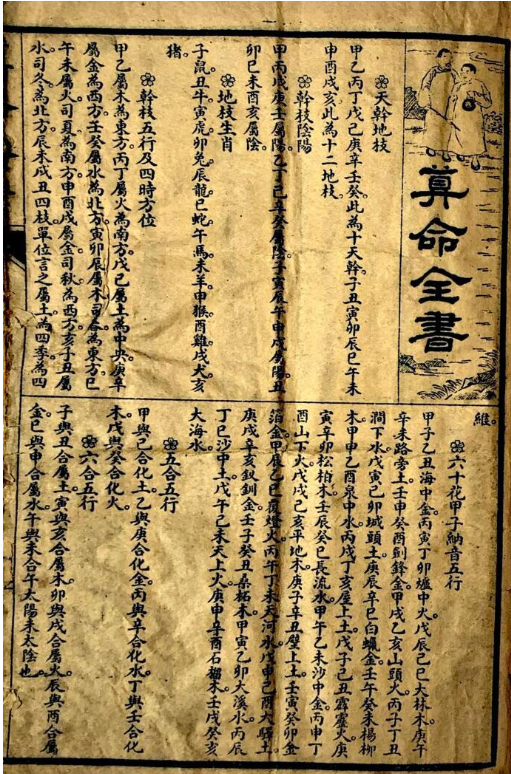 算命全書
天幹地枝
甲乙丙丁戊己庚辛壬癸此為十天幹。子丑寅卯辰巳午未
申酉戌亥此為十二地枝。
幹枝陰陽
甲丙戊庚壬屬陽。乙丁己辛癸屬陰。子寅辰午申戌屬陽。丑
卯巳未酉亥屬陰。
地枝生肖
子鼠丑牛寅虎卯兔辰龍巳蛇午馬未羊申猴酉雞戌犬亥
猪。
幹枝五行及四時方位
甲乙屬木為東方。丙丁屬火為南方。戊己屬土為中央。庚辛
屬金為西方。壬癸屬水為北方。寅卯辰屬木司春為東方。巳
午未屬火司夏為南方。申酉戌屬金司秋為西方。亥子丑屬
水司冬為北方。辰未戌丑四枝單位言之屬土為四季為四
維。
六十花甲子納音五行
甲子乙丑海中金。丙寅丁卯爐中火。戊辰己巳大林木。庚午
辛未路旁土。壬申癸酉劍鋒金。甲戌乙亥山頭火。丙子丁丑
澗下水。戊寅己卯城頭土。庚辰辛巳白蠟金。壬午癸未楊柳
木。甲申乙酉泉中水。丙戌丁亥屋上土。戊子己丑霹靂火。庚
寅辛卯松柏木。壬辰癸巳長流水。甲午乙未沙中金。丙申丁
酉山下火。戊戌己亥平地木。庚子辛丑壁上土。壬寅癸卯金
箔金。甲辰乙巳覆燈火。丙午丁未天河水。戊申己酉大驛土。
庚戌辛亥釵釧金。壬子癸丑桑柘木。甲寅乙卯大溪水。丙辰
丁巳沙中土。戊午己未天上火。庚申辛酉石榴木。壬戌癸亥
大海水。
五合五行
甲與己合化土。乙與庚合化金。丙與辛合化水。丁與壬合化
木。戊與癸合化火。
六合五行
子與丑合屬土。寅與亥合屬木。卯與戌合屬火。辰與酉合屬
金。巳與申合屬水。午與未合午太陽未太陰也。